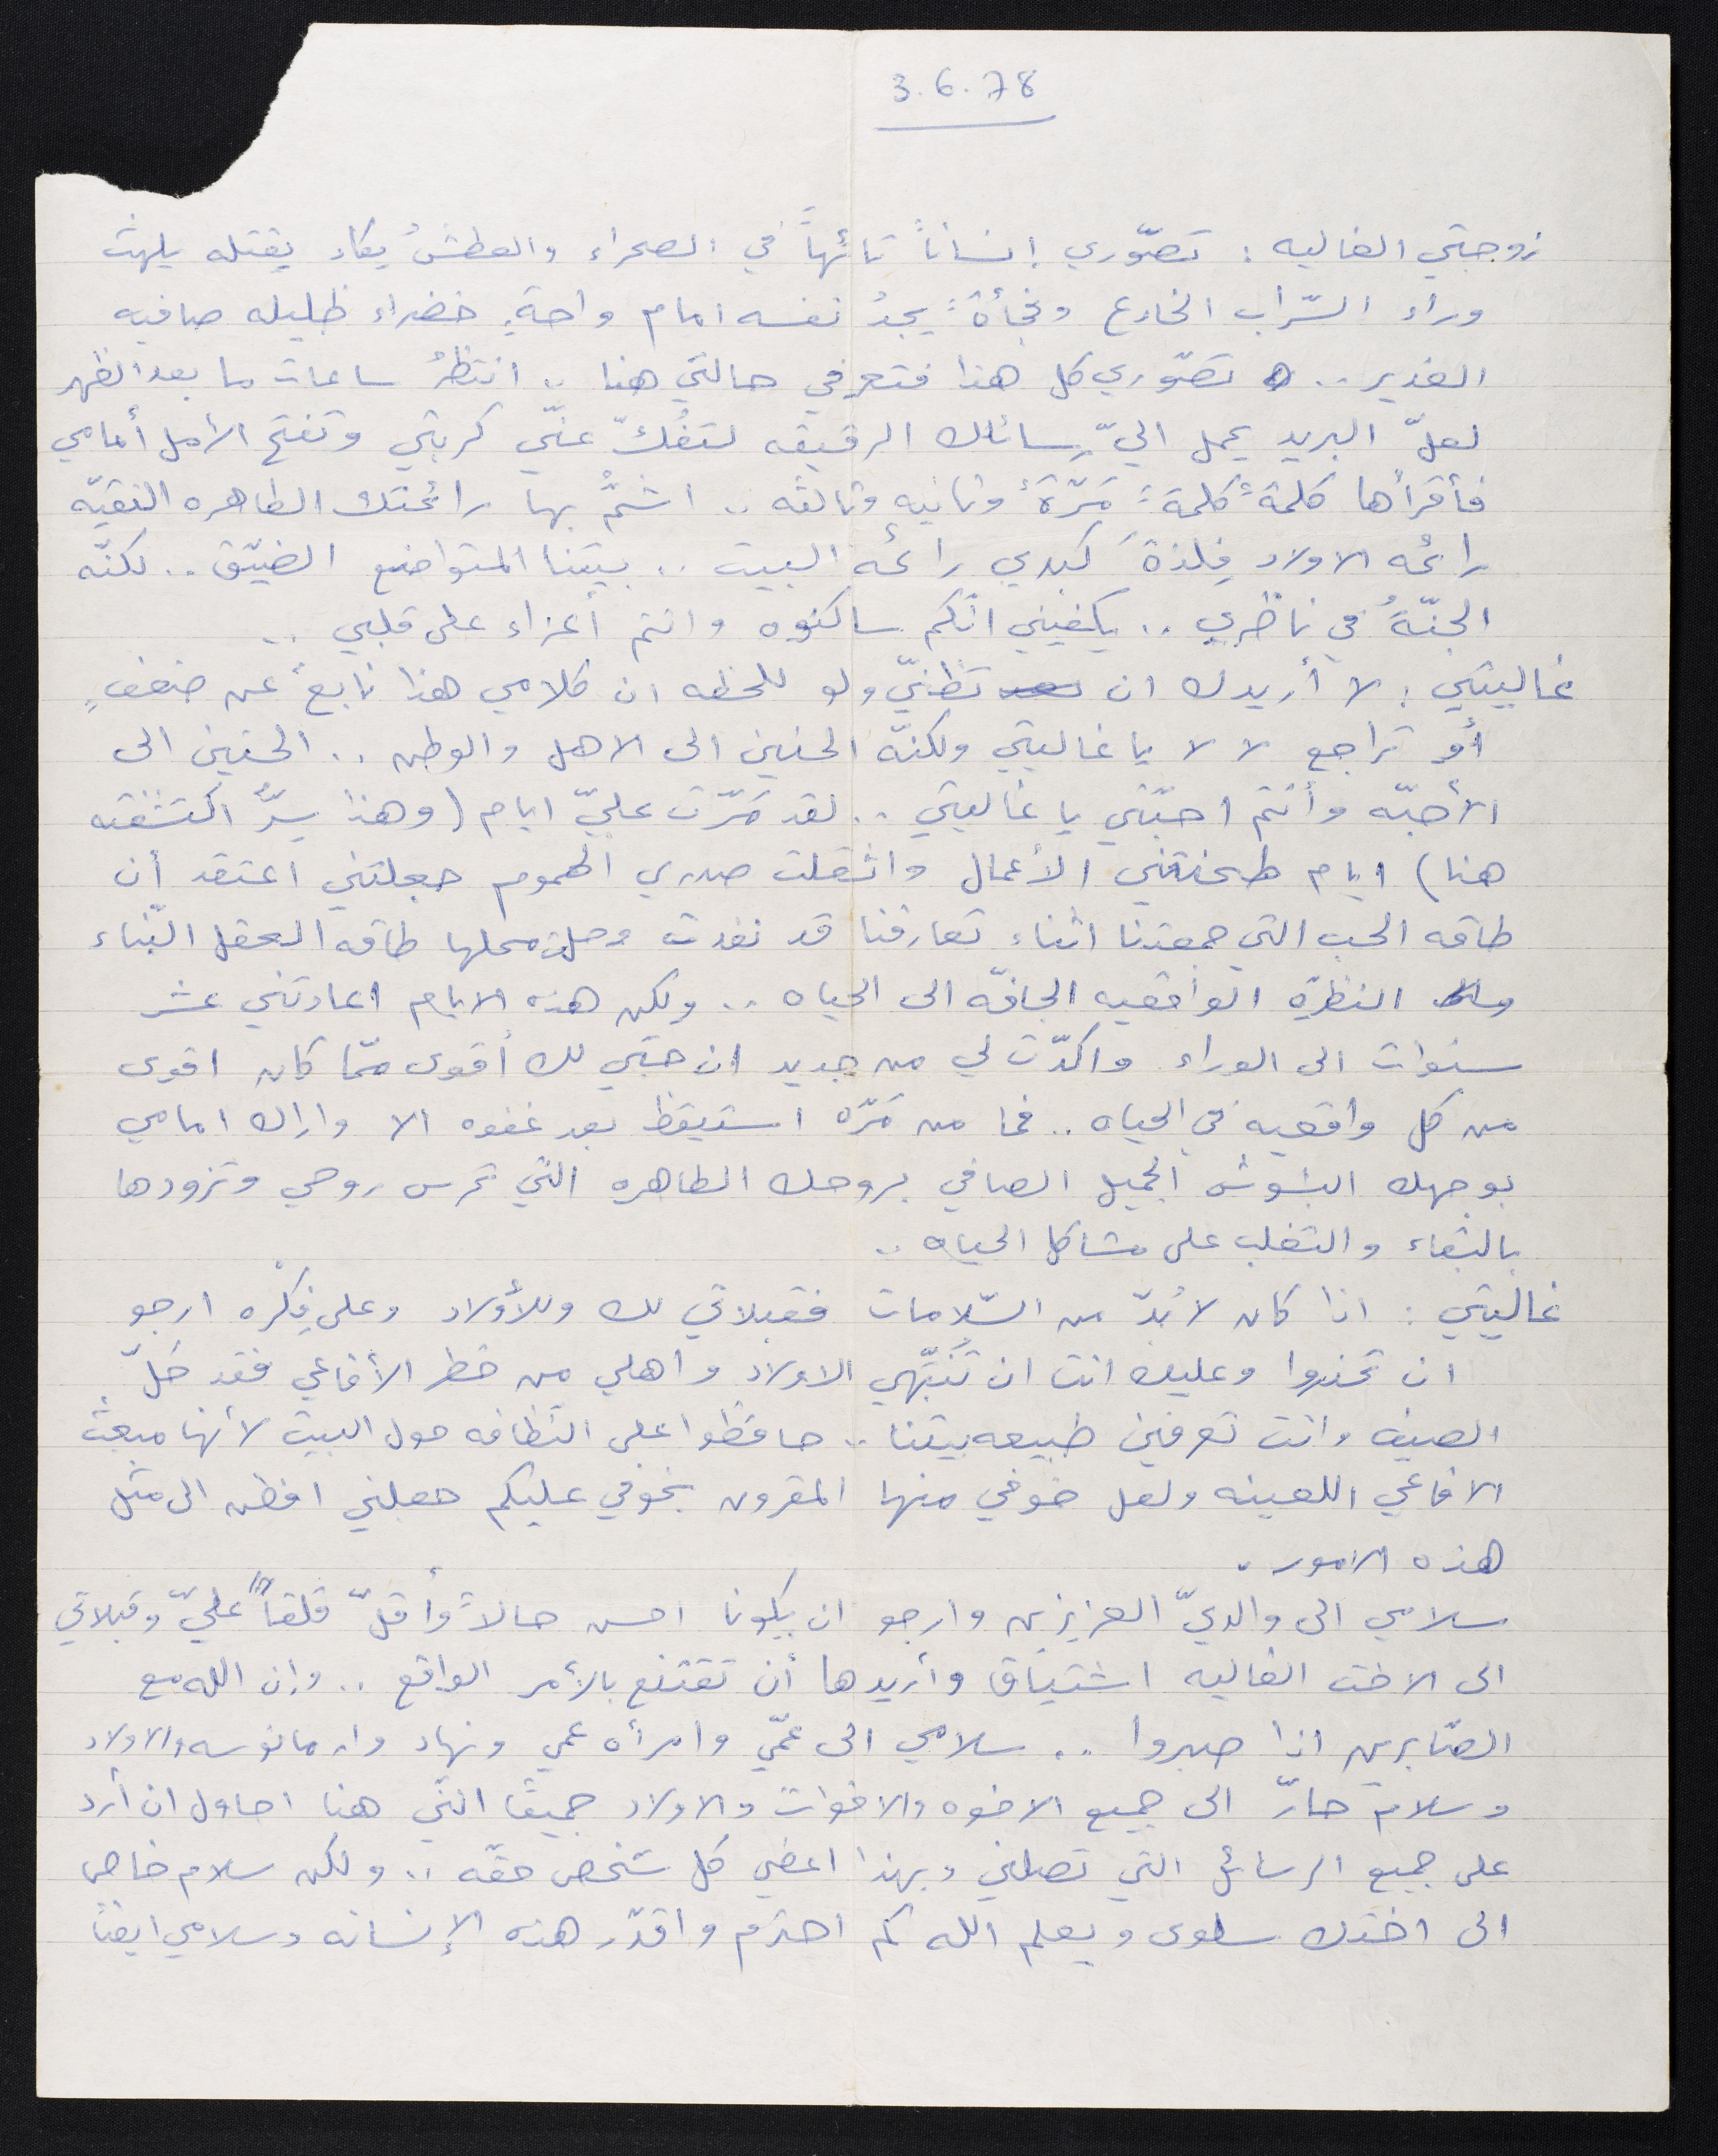 3.6.78
زوجتي الغاليه : تصّوري إنساناً تائهاً في الصحراء والعطشُ يكاد يقتله يلهث
وراء السّراب الخادع وفجأةً يجدُ نفسه امام واحةٍ خضراء ظليله صافيه
الغدير .. تصّوري كل هذا فتعرفي حالتي هنا .. انتظرُ ساعات ما بعد الظهر
لعلّ البريد يحمل اليّ رسائلك الرقيقه لتفُكّ عنّي كربتي وتفتح الأمل أمامي
فأقرأها كلمةً كلمةً مَرّةً وثانيه وثالثه .. اشتمُّ بها رائحتك الطاهره النقيّه
رائحه الاولاد فِلذةَ كبدي رائحه البيت .. بيتنا المتواضع الضيّق .. لكنّه
الجنّةُ في ناظري .. يكفيني انّكم ساكنوه وانتم أعزاء على قلبي ..
غاليتي : لا أريدك ان تظنّي ولو للحظه ان كلامي هذا نابعٌ عن ضعفٍ
أو تراجع لا لا يا غاليتي ولكنّه الحنين الى الاهل والوطن .. الحنين الى
الأحبّه وأنتم احبّتي يا غاليتي .. لقد مَرّت عليّ ايام (وهذا سِرٌّ اكتشفته
هنا) ايام طحنتني الأعمال واثقلت صدري الهموم جعلتني اعتقد أن
طاقه الحب التي جمعتنا اثناء تعارفنا قد نفدت وحلّ محلها طاقه العقل البّناء
النظره الواقعيه الجافّه الى الحياه .. ولكن هذه الايام اعادتني عشر
سنوات الى الوراء واكدّت لي من جديد ان حبّي لك أقوى ممّا كان اقوى
من كل واقعيه في الحياه .. فما من مَرّه استيقظ بعد غفوه الا واراك امامي
بوجهك البشوش الجميل الصافي بروحك الطاهره التي تحرس روحي وتزودها
بالبقاء والتغلب على مشاكل الحياه ..
غاليتي : اذا كان لا بُدّ من السّلامات فقبلاتي لك وللأولاد وعلى فِكْره ارجو
ان تحذروا وعليك انت ان تُنَبّهي الاولاد واهلي من خطر الأفاعي فقد حَلّ
الصيف وانت تعرفين طبيعه بيتنا .. حافظوا على النظافه حول البيت لأنها مبعث
الافاعي اللعينه ولعل خوفي منها المقرون بخوفي عليكم جعلني افطن الى مثل
هذه الامور .
سلامي الى والديّ العزيزين وارجو ان يكونا احسن حالاً وأقلّ قلقاً عليّ وقبلاتي
الى الاخت الغاليه اشتياق وأريدها أن تقتنع بالأمر الواقع .. وإن الله مع
الصّابرين اذا صبروا .. سلامي الى عمّي وامرأه عمي ونهاد وارمانوسه والاولاد
وسلام حارّ الى جميع الاخوه والاخوات والاولاد جميعًا انّني هنا احاول ان أرد
على جميع الرسائل التي تصلني وبهذا اعطي كل شخص حقّه .. ولكن سلام خاص
الى اختك سلوى ويعلم الله كم احترم واقدّر هذه الإنسانه وسلامي ايضًا